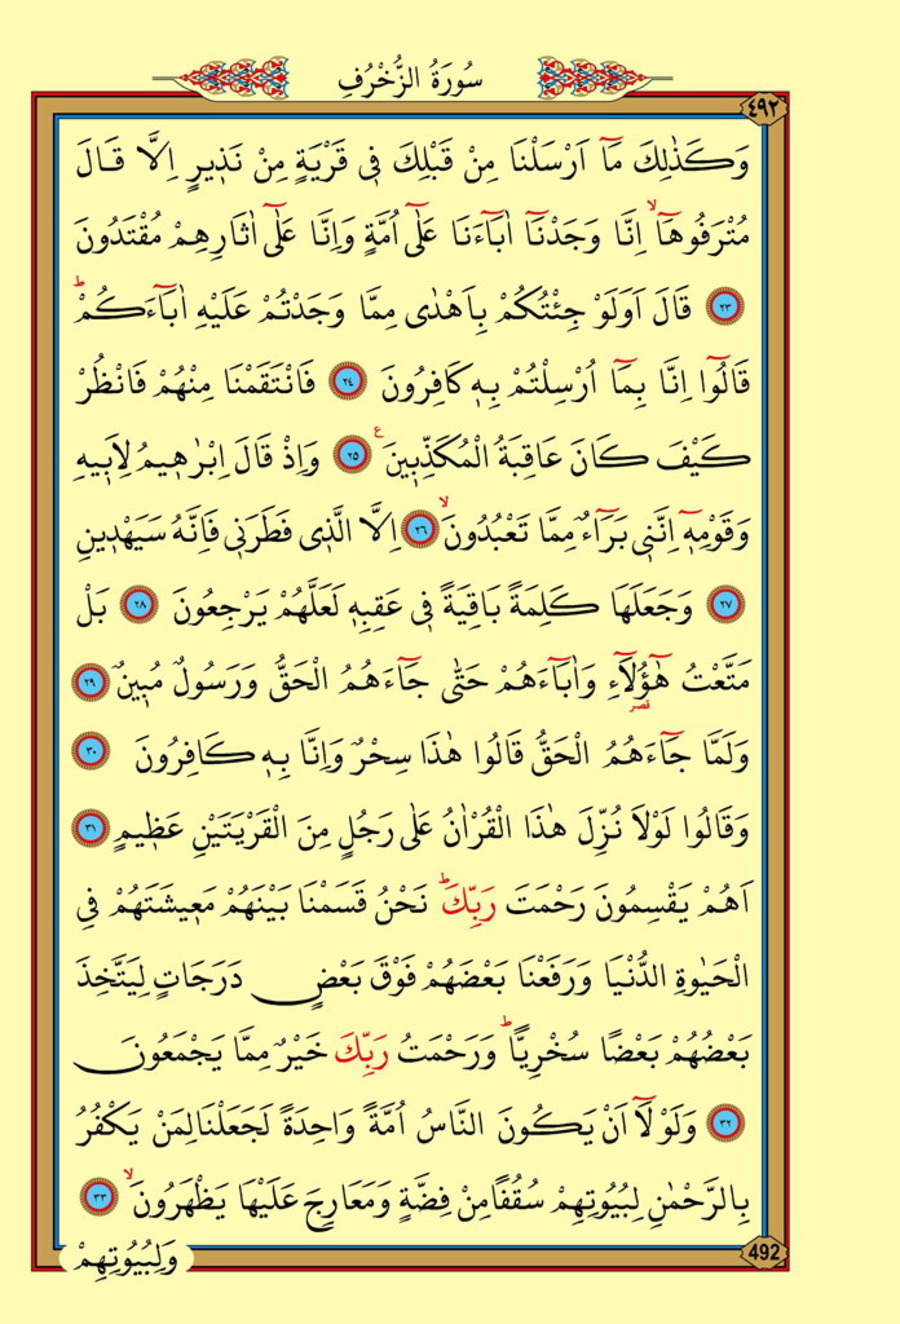 سُورَةُ الزُّخْرُفِ
٤٩٢
وَكَذٰلِكَ مَٓا اَرْسَلْنَا مِنْ قَبْلِكَ ف۪ي قَرْيَةٍ مِنْ نَذ۪يرٍ اِلَّا قَالَ
مُتْرَفُوهَٓاۙ اِنَّا وَجَدْنَٓا اٰبَٓاءَنَا عَلٰٓى اُمَّةٍ وَاِنَّا عَلٰٓى اٰثَارِهِمْ مُقْتَدُونَ
٢٣ قَالَ اَوَلَوْ جِئْتُكُمْ بِاَهْدٰى مِمَّا وَجَدْتُمْ عَلَيْهِ اٰبَٓاءَكُمْۜ
قَالُٓوا اِنَّا بِمَٓا اُرْسِلْتُمْ بِه۪ كَافِرُونَ ٢٤ فَانْتَقَمْنَا مِنْهُمْ فَانْظُرْ
كَيْفَ كَانَ عَاقِبَةُ الْمُكَذِّب۪ينَ ع ٢٥ وَاِذْ قَالَ اِبْرٰه۪يمُ لِاَب۪يهِ
وَقَوْمِه۪ٓ اِنَّن۪ي بَرَٓاءٌ مِمَّا تَعْبُدُونَۙ ٢٦ اِلَّا الَّذ۪ي فَطَرَن۪ي فَاِنَّهُ سَيَهْد۪ينِ
٢٧ وَجَعَلَهَا كَلِمَةً بَاقِيَةً ف۪ي عَقِبِه۪ لَعَلَّهُمْ يَرْجِعُونَ ٢٨ بَلْ
مَتَّعْتُ هٰٓؤُ۬لَٓاءِ وَاٰبَٓاءَهُمْ حَتّٰى جَٓاءَهُمُ الْحَقُّ وَرَسُولٌ مُب۪ينٌ ٢٩
قصر
وَلَمَّا جَٓاءَهُمُ الْحَقُّ قَالُوا هٰذَا سِحْرٌ وَاِنَّا بِه۪ كَافِرُونَ ٣٠
وَقَالُوا لَوْلَا نُزِّلَ هٰذَا الْقُرْاٰنُ عَلٰى رَجُلٍ مِنَ الْقَرْيَتَيْنِ عَظ۪يمٍ ٣١
اَهُمْ يَقْسِمُونَ رَحْمَتَ رَبِّكَۜ نَحْنُ قَسَمْنَا بَيْنَهُمْ مَع۪يشَتَهُمْ فِي
الْحَيٰوةِ الدُّنْيَا وَرَفَعْنَا بَعْضَهُمْ فَوْقَ بَعْضٍ دَرَجَاتٍ لِيَتَّخِذَ
بَعْضُهُمْ بَعْضًا سُخْرِيًّاۜ وَرَحْمَتُ رَبِّكَ خَيْرٌ مِمَّا يَجْمَعُونَ
٣٢ وَلَوْلَٓا اَنْ يَكُونَ النَّاسُ اُمَّةً وَاحِدَةً لَجَعَلْنَا لِمَنْ يَكْفُرُ
بِالرَّحْمٰنِ لِبُيُوتِهِمْ سُقُفًا مِنْ فِضَّةٍ وَمَعَارِجَ عَلَيْهَا يَظْهَرُونَۙ ٣٣
492
وَلِبُيُوتِهِمْ